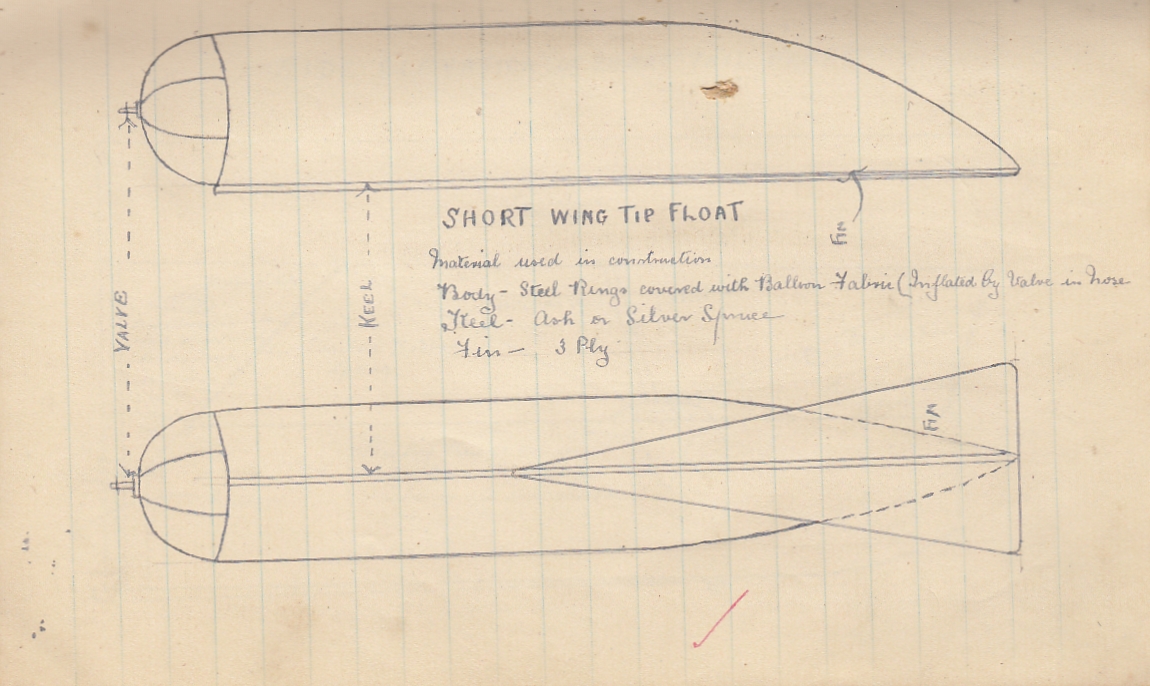 SHORT WING TIP FLOAT
Material used in construction
Body - Steel Rings covered with Balloon Fabric (Inflated by Valve in Nose
Keel - Ash or Silver Spruce
Fin - 3 Ply
VALVE
KEEL
FIN
FIN